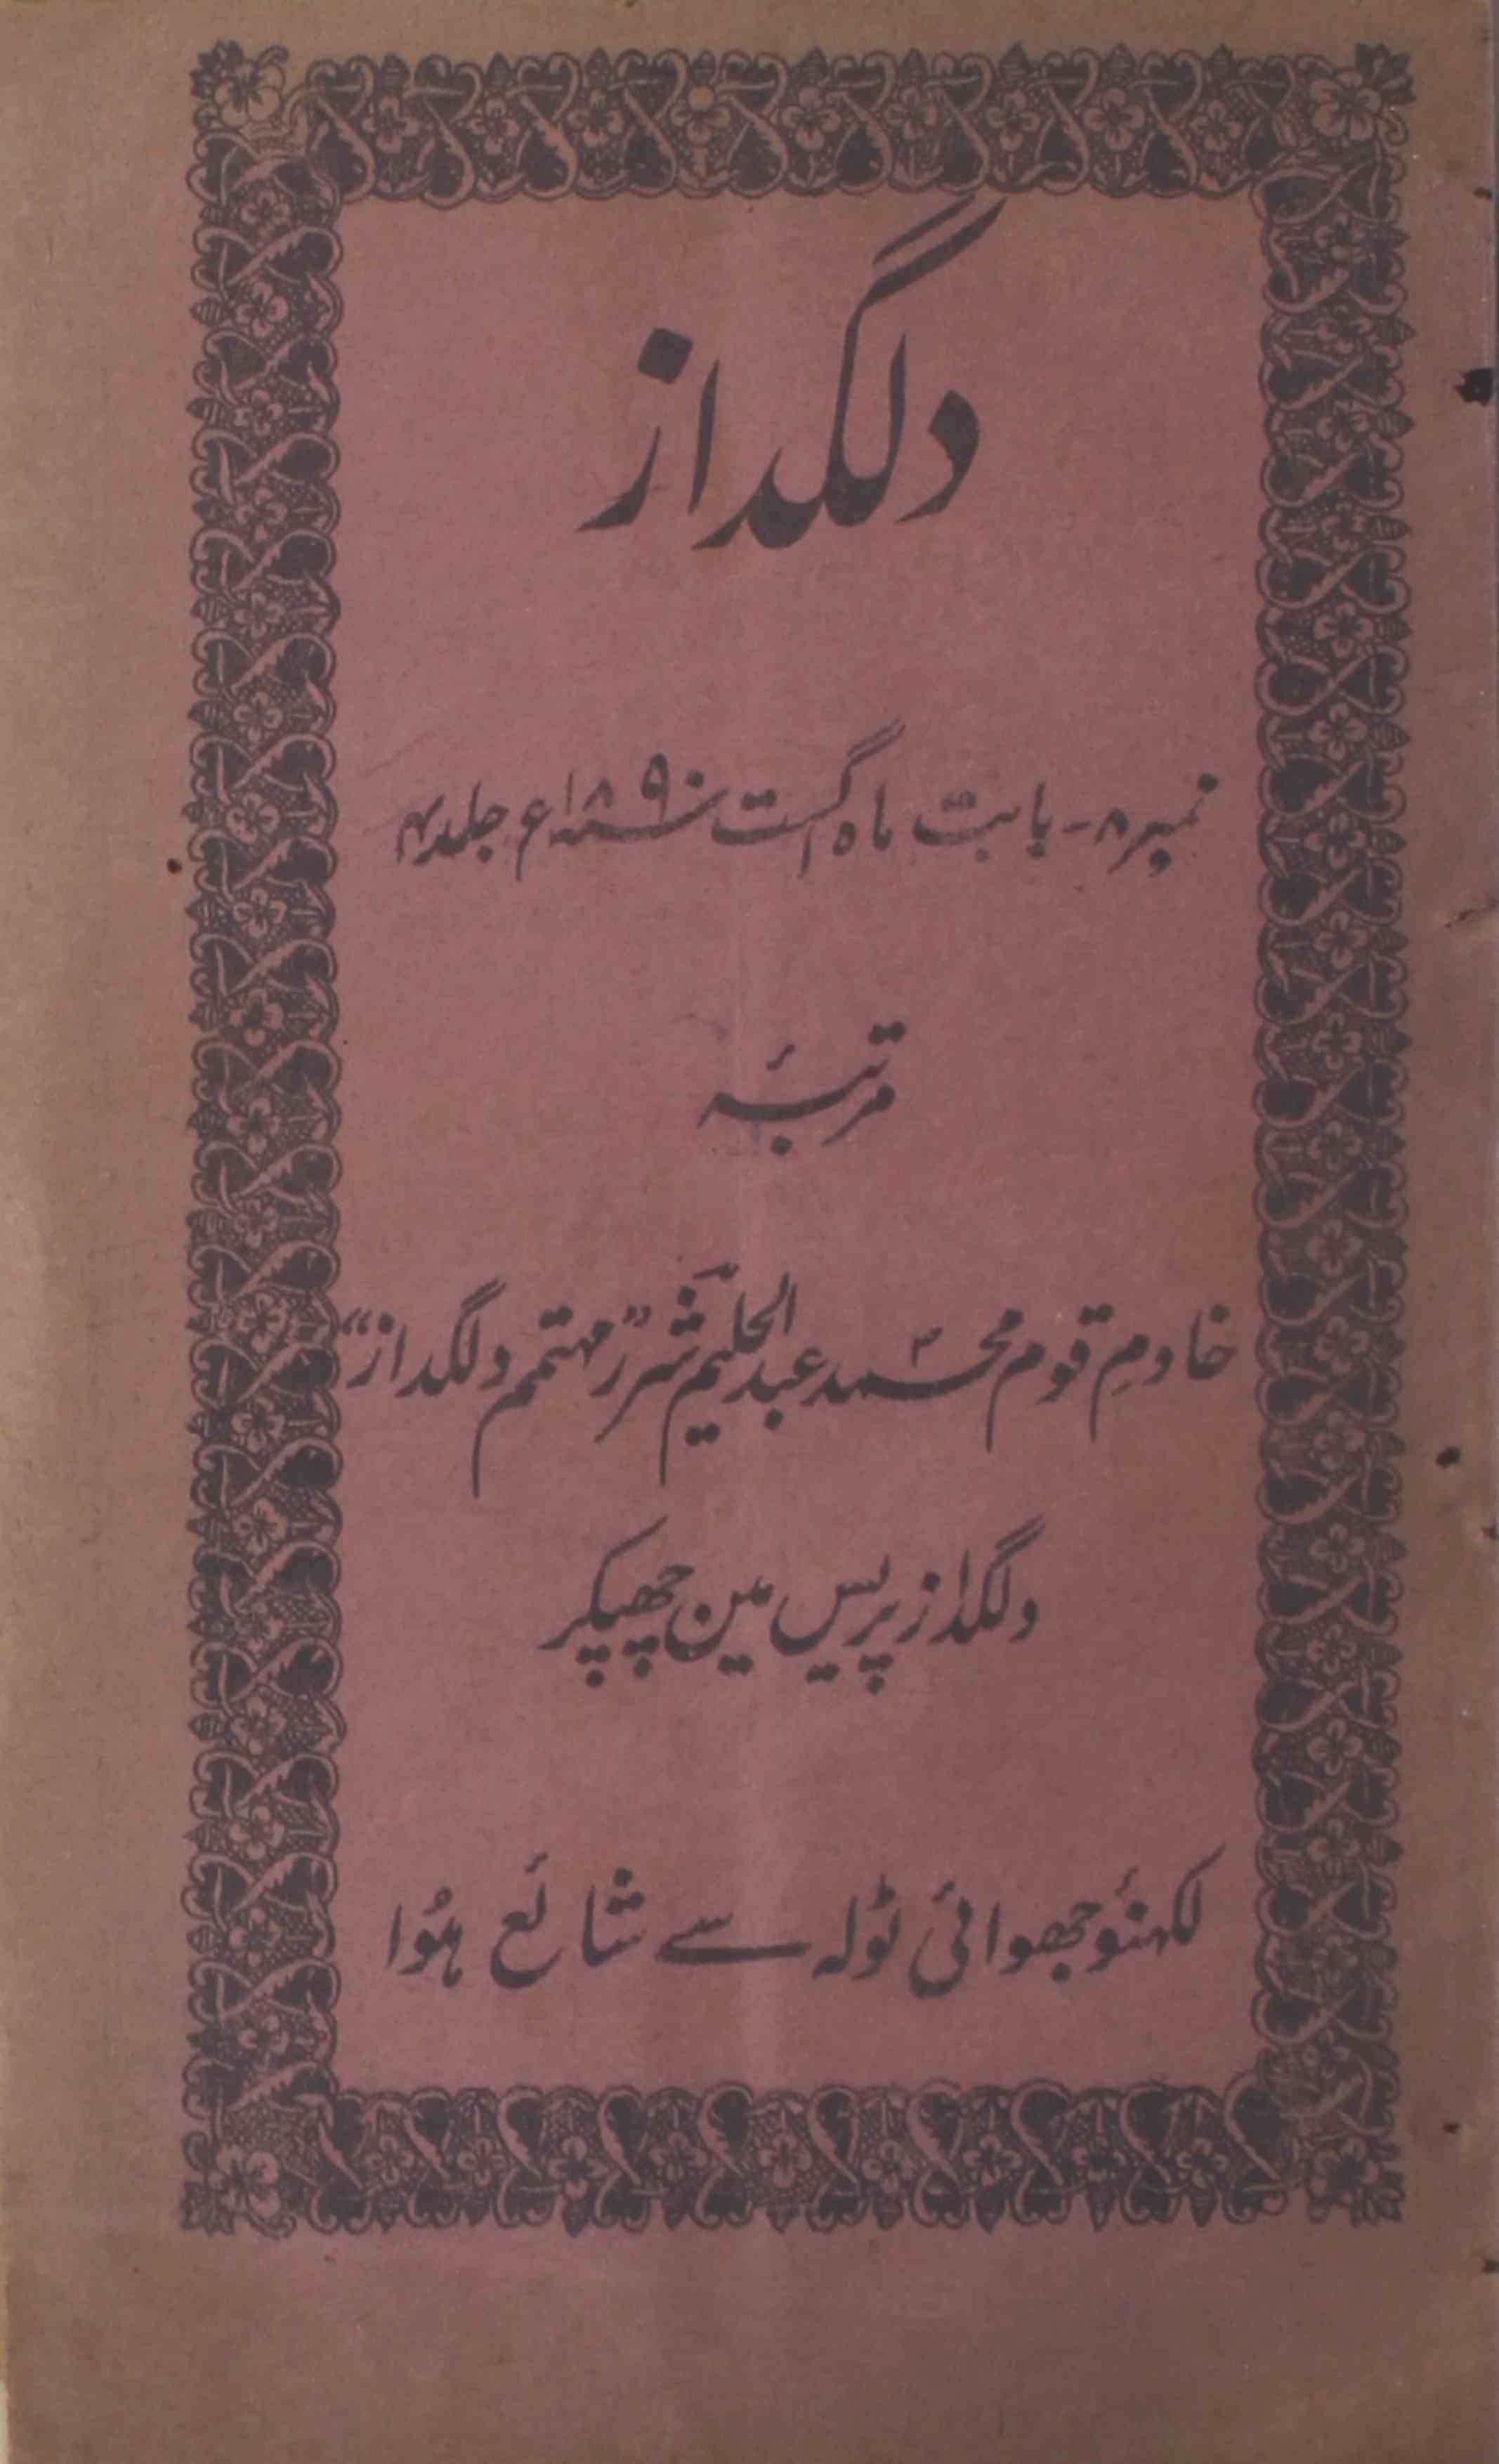 دلگداز
نمبر ۸ - بابت ماہ اگست سنہ ۱۸۹۰ء جلد ۴
مرتبۂ
خادمِ قوم محمد عبدالحلیم شرر "مہتمم دلگداز"
دلگداز پریس مین چھپکر
لکھنؤ جھوائی ٹولہ سے شائع ہُوا